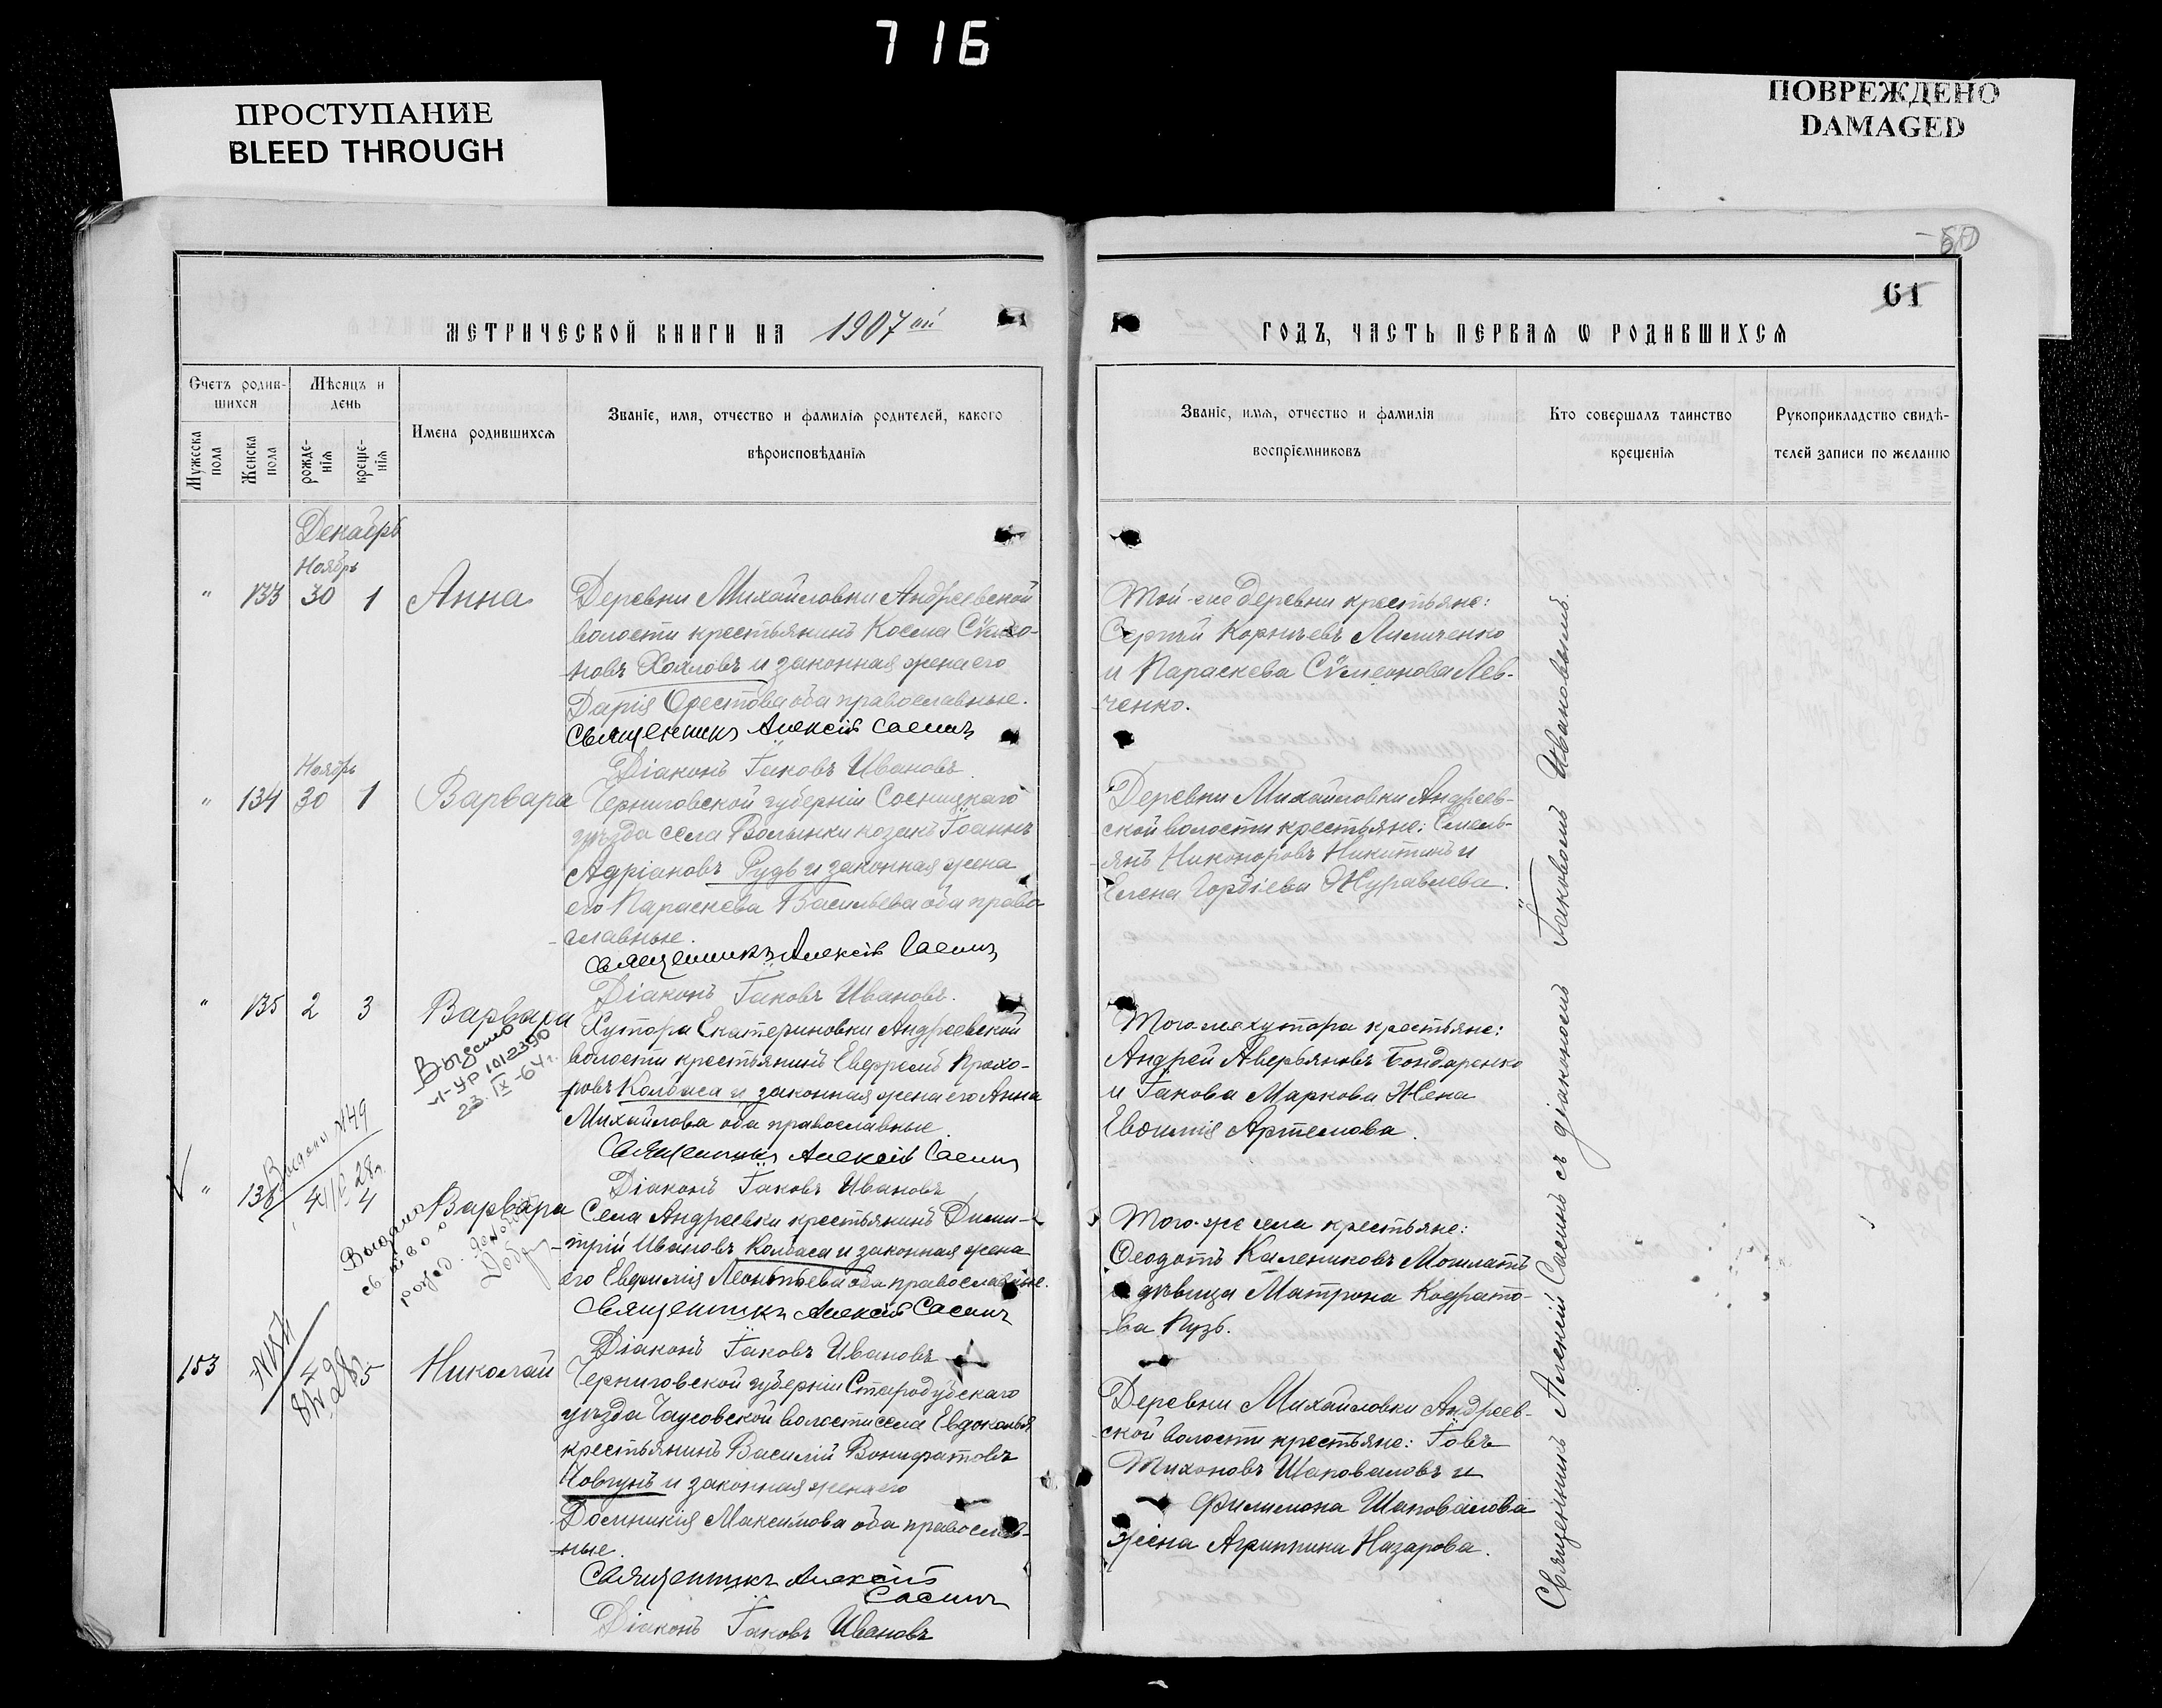 716
ПРОСТУПАНИЕ
BLEED THROUGH
ПОВРЕЖДЕНО
DAMAGED
60
61
МЕТРИЧЕСКОЙ КНИГИ НА 1907 ый
Счетъ родив-
шихся
Мѣсяцъ и
день
Мужеска
пола
Женска
пола
рожде-
нія
креще-
нія
Имена родившихся
Званіе, имя, отчество и фамилія родителей, какого
вѣроисповѣданія
Декабрь
Ноябрь
" 133 30 1 Анна
Деревни Михайловки Андреевской
волости крестьянинъ Косма Сѵмео-
новъ Хохловъ и законная жена его
Дарія Орестова оба православные.
Священникъ Алексій Сасинъ
Діаконъ Іаковъ Ивановъ.
Ноябрь
" 134 30 1 Варвара
Черниговской губерніи Сосницкаго
уѣзда села Волынки козакъ Іоаннъ
Адріановъ Рудь и законная жена
его Параскева Васильева оба право-
славные.
Священникъ Алексій Сасинъ
Діаконъ Іаковъ Ивановъ.
" 135 2 3 Варвара
Выдано
VI-УР 1012390
23.IX-64 г.
Хутора Екатериновки Андреевской
волости крестьянинъ Евфремъ Прохо-
ровъ Колбаса и законная жена его Анна
Михайлова оба православные.
Священникъ Алексій Сасинъ
Діаконъ Іаковъ Ивановъ
Выдано №49
28 г.
" 136 4 4 Варвара
Выдано
св-тво о
рожд.
Села Андреевки крестьянинъ Дими-
трій Ивановъ Колбаса и законная жена
его Евфимія Леонтьева оба православные.
Священникъ Алексій Сасинъ
Діаконъ Іаковъ Ивановъ
153 4 5 Николай
Черниговской губерніи Стародубскаго
уѣзда Чаусовской волости села Евдоколья
крестьянинъ Василій Вонифатовъ
Човгунъ и законная жена его
Домникія Максимова оба православ-
ные.
Священникъ Алексій
Сасинъ
Діаконъ Іаковъ Ивановъ
ГОДЪ, ЧАСТЬ ПЕРВАЯ Ѡ РОДИВШИХСЯ
Званіе, имя, отчество и фамилія
воспріемниковъ
Кто совершалъ таинство
крещенія
Рукоприкладство свидѣ-
телей записи по желанію
Той-же деревни крестьяне:
Сергѣй Корнѣевъ Литиченко
и Параскева Сѵмеонова Лев-
ченко.
Деревни Михайловки Андреев-
ской волости крестьяне: Емель-
янъ Никоноровъ Никитинъ и
Елена Гордіева Журавлева.
Того-же хутора крестьяне:
Андрей Аверьяновъ Бондаренко
и Іакова Маркова Жена
Евѳимія Артемова.
Того-же села крестьяне:
Ѳеодотъ Калениковъ Мошлатъ
и дѣвица Матрона Кодрато-
ва Пузь.
Деревни Михайловки Андреев-
ской волости крестьяне: Іовъ
Тихоновъ Шаповаловъ и
Филимона Шаповалова
жена Агриппина Назарова.
Священникъ Алексій Сасинъ съ діакономъ Іаковомъ Ивановымъ.